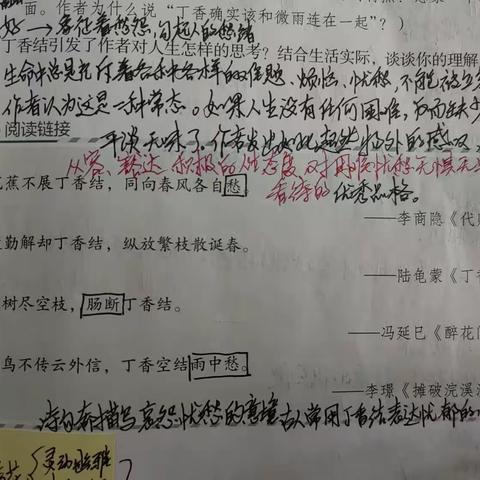 面。作者为什么说"丁香确实该和微雨连在一起"？）
好→象征着愁怨,勾起人的愁绪
丁香结引发了作者对人生怎样的思考？结合生活实际，谈谈你的理解
生命中总是充斥着各种各样的难题、烦恼、忧愁,不能被
作者认为这是一种常态。如果人生没有任何困难,反而缺少
阅读链接
平谈无味了.作者发出如此超然物外的感叹
从容、豁达 积极的人生态度,对困难忧愁无惧无
芭蕉不展丁香结，同向春风各自愁。
看待的优秀品格。
——李商隐《代
勤解却丁香结，纵放繁枝散诞春。
——陆龟蒙《丁
树尽空枝，肠断丁香结。
——冯延巳《醉花
鸟不传云外信，丁香空结雨中愁。
——李璟《摊破浣溪
诗句都描写哀怨忧愁的意境 古人常用丁香结表达忧郁的